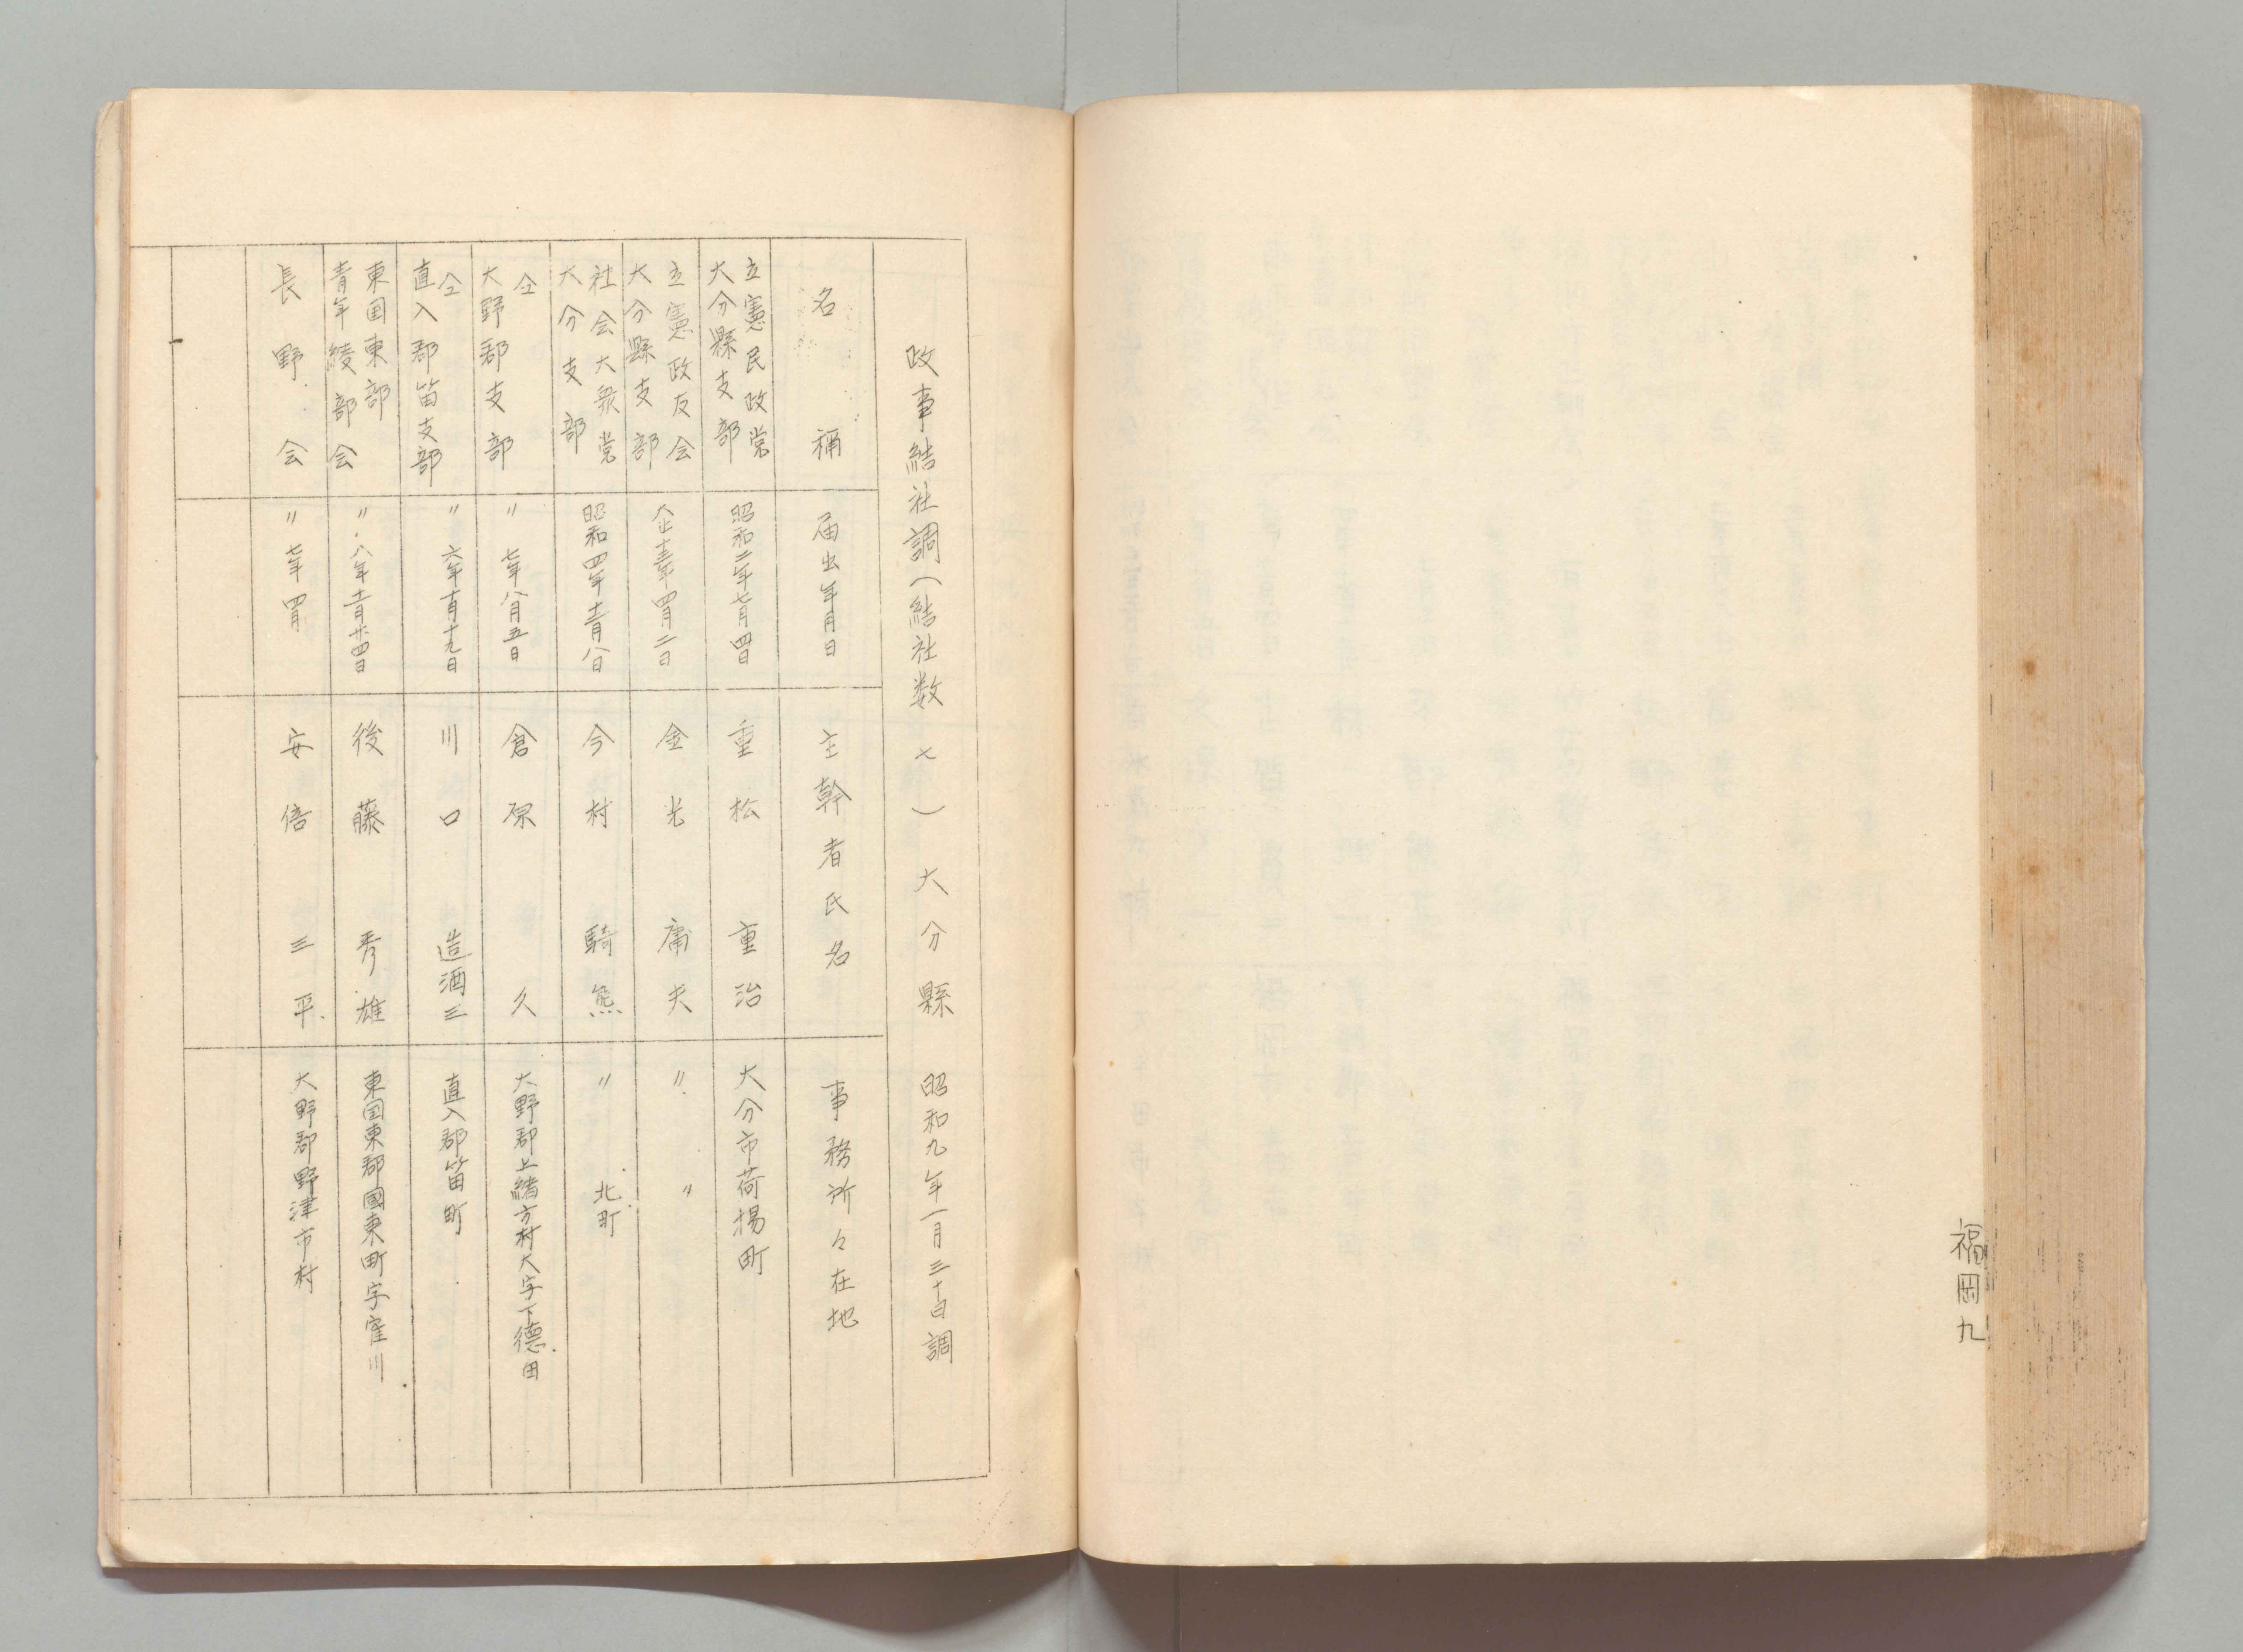 福岡九
政事結社調(結社数 七) 大分縣 昭和九年一月三十日調
名稱 届出年月日 主幹者氏名 事務所々在地
立憲民政党
大分縣支部
昭和二年七月四日
重松 重治
大分市荷揚町
立憲政友会
大分縣支部
四月二日
金光 庸夫
〃 〃
社会大衆党
大分支部
昭和四年
八日
今村 騎熊
〃 北町
仝
大野郡支部
〃 七年八月五日
倉原 久
大野郡上緒方村大字下徳田
仝
直入郡笛支部
〃 六年十月十九日
川口 造酒三
直入郡笛町
東国東部
青年綾部会
〃 八年十一月廿四日
後藤 秀雄
東国東郡國東町字窪川
長野会
〃 七年四月
安倍 三平
大野郡野津市村